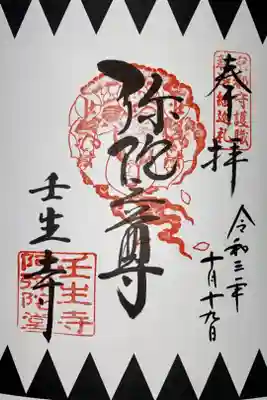 奉拝
令和三年
十月十九日
弥陀三尊
壬生寺
壬生寺
阿弥陀堂